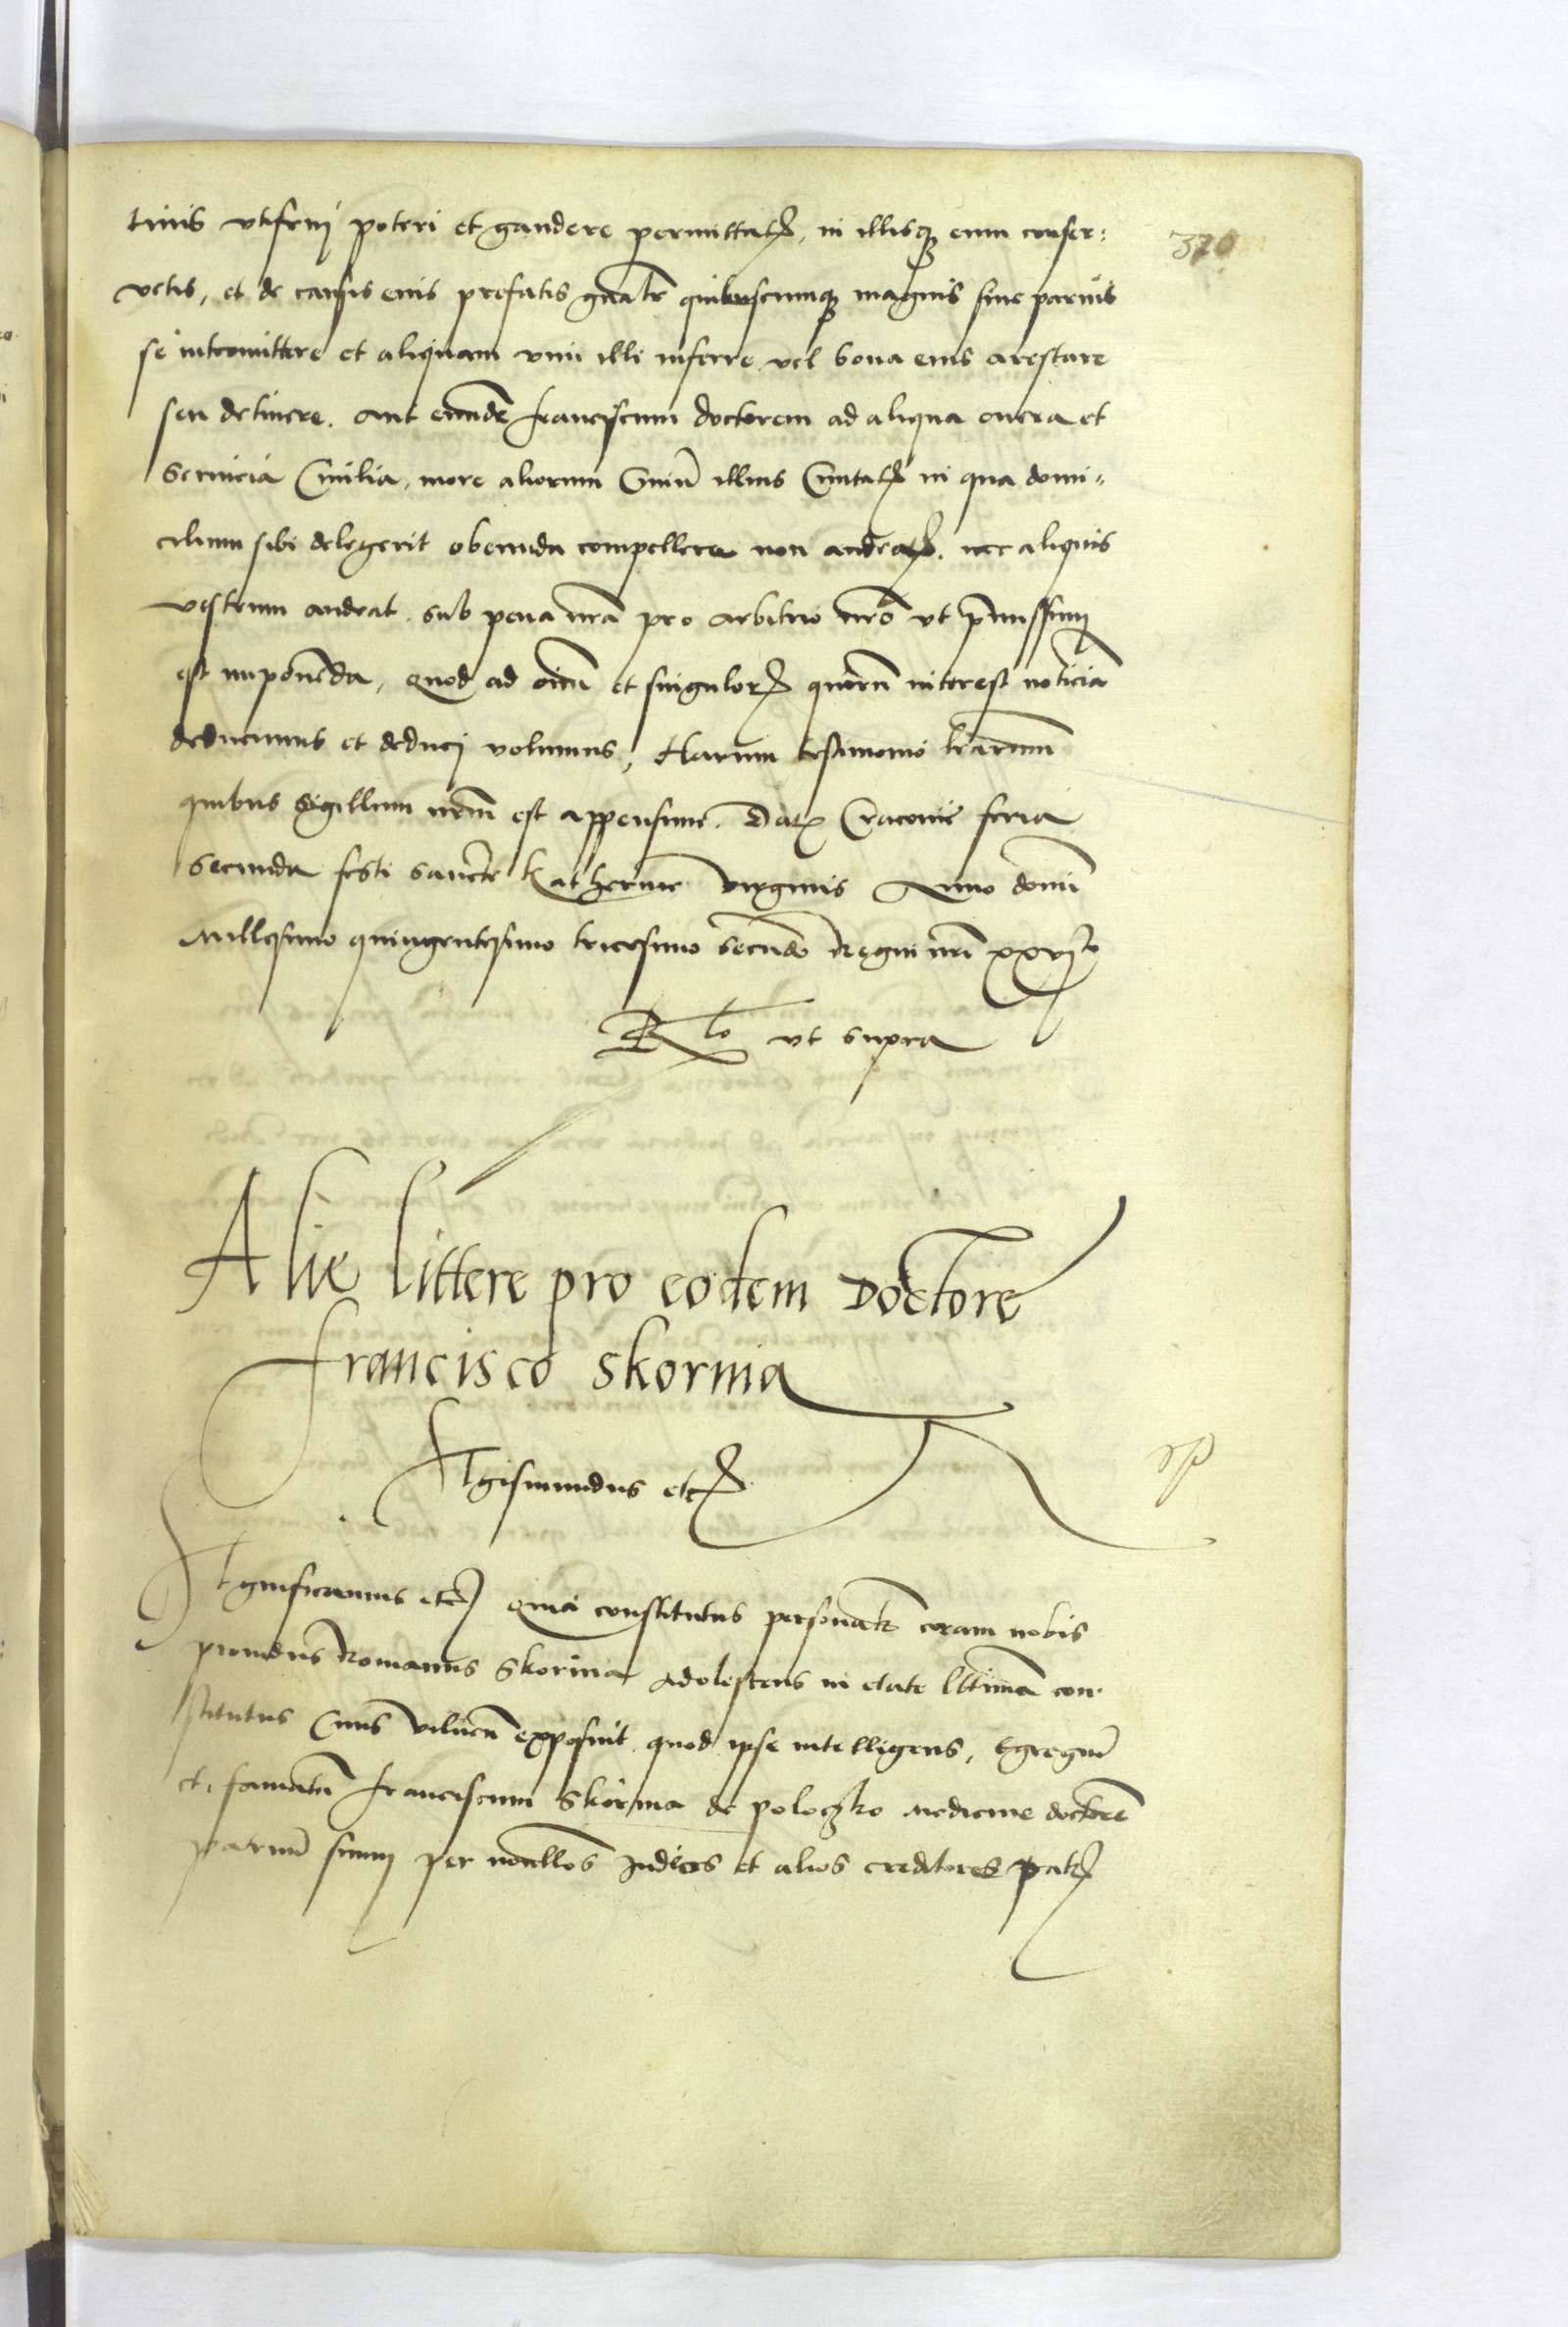 tinis utifrui poteri et gaudere permittat(is), in illisq(ue) eum conser:
370
vetis, et de causis eius prefatis gnalr quibuscumq(ue) magnis sive parvis
se intromittere et aliquam vim illi inferre vel bona eius arestare
seu detinere. aut eundē franciscum doctorem ad aliqua onera et
servicia Civilia, more aliorum Civiū illius Civitat(is) in qua domi=
cilium sibi delegerit obeunda compellere non audeat(is). nec aliquis
vestrum audeat. sub pena nrā pro arbitrio nrō ut p̄missum
est imponēda, Quod ad oīm et singulor(um) quorū interest noticiā
deducimus et deduci volumus, Harum testimonio lrārum
quibus Sigillum nrm̄ est appensum. Dat(um) Cracovie feria
secunda festi sancte Katherine virginis Anno domī
Millesimo quingentesimo tricesimo secūdo Regni nrī xxvjto
R̄lo ut supra
Alie littere pro eodem Doctore
Francisco Skorina
Sigismundus etc
Significamus etc Quia constitutus personalr coram nobis
providus Romanus Skorina Adolescens in etate lttimā con-
stitutus Civis vilnen̄ exposuit quod ipse intelligens, Egregiū
et famatū Franciscum Skorina de poloczko Medicine doctorē
patruū suum per nōnullos Judices et alios creditores patr(is)